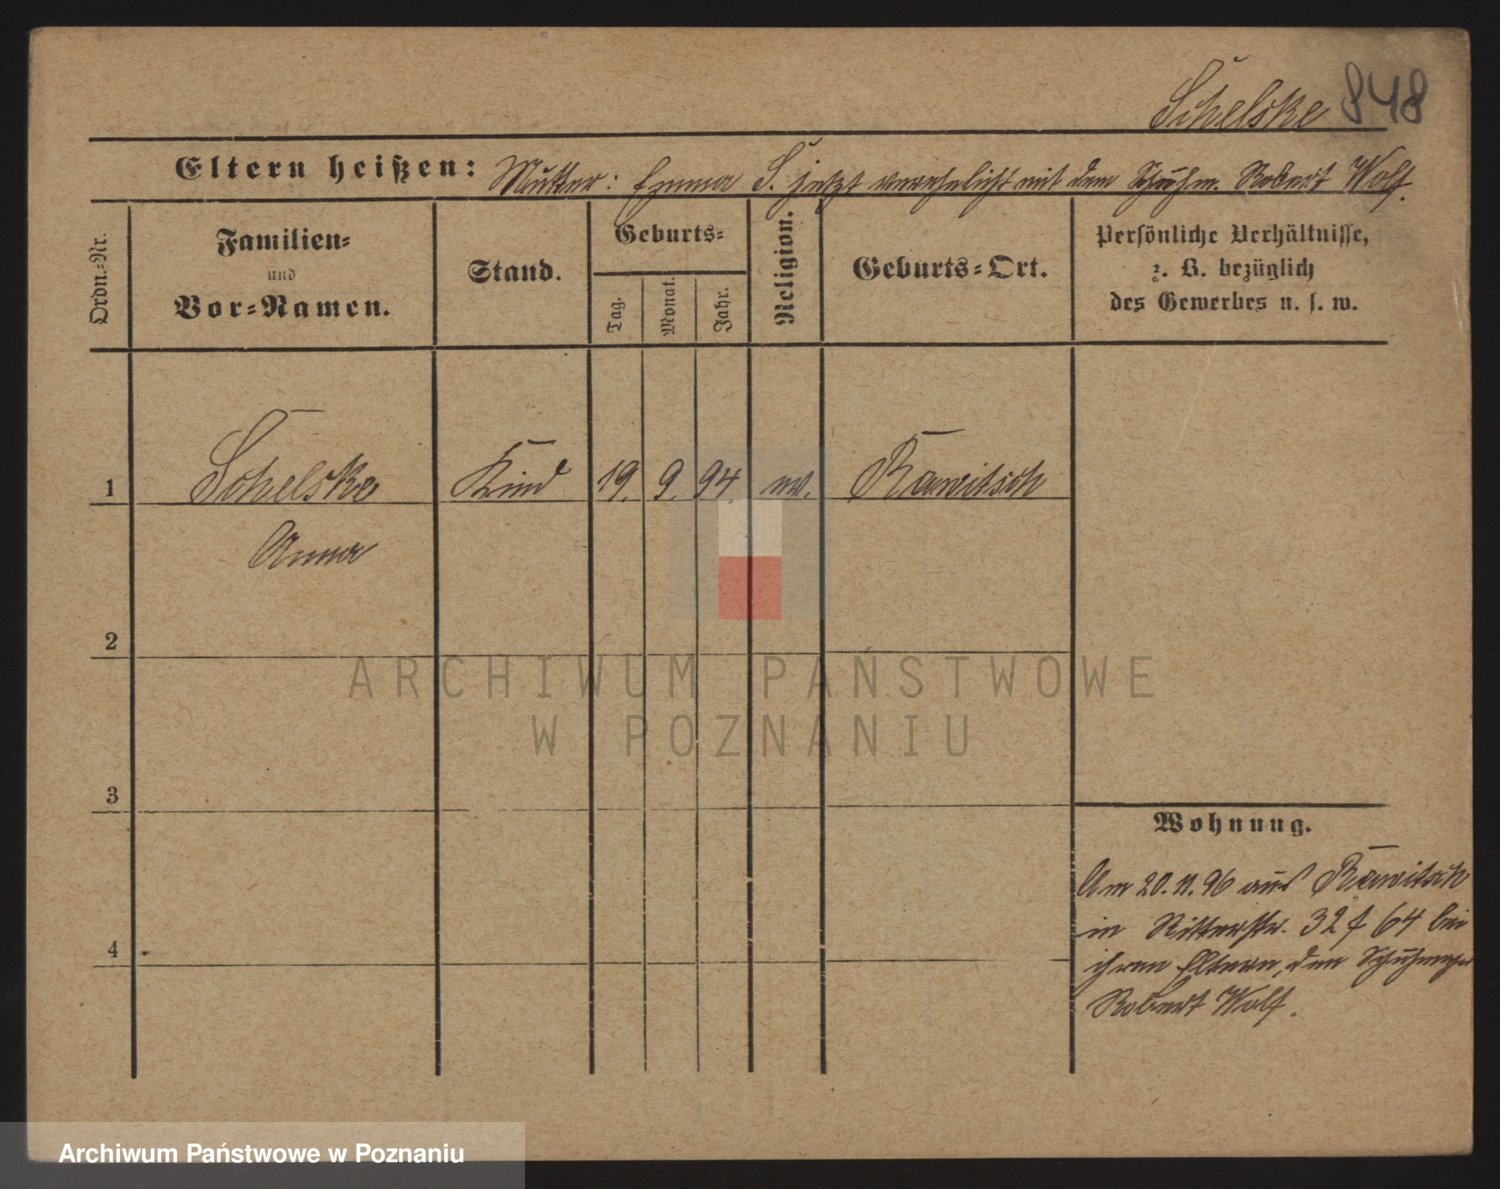 Schelske 848
Eltern heißen: Mutter: Emma S. jetzt verehelicht mit dem Schuhm. Robert Wolf.
Ordn.-Nr.
Familien-
und
Vor-Namen.
Stand.
Geburts-
Tag.
Monat.
Jahr.
Religion.
Geburts-Ort.
Persönliche Verhältnisse,
z. B. bezüglich
des Gewerbes u. s. w.
1 Schelske Kind 19. 9. 94 ev. Rawitsch
Anna
2
ARCHIWUM PAŃSTWOWE
W POZNANIU
3
Wohnung.
Am 20. 11. 96 aus Rawitsch
in Ritterstr. 32 f 64 bei
ihren Eltern, den
Robert Wolf.
4
Archiwum Państwowe w Poznaniu